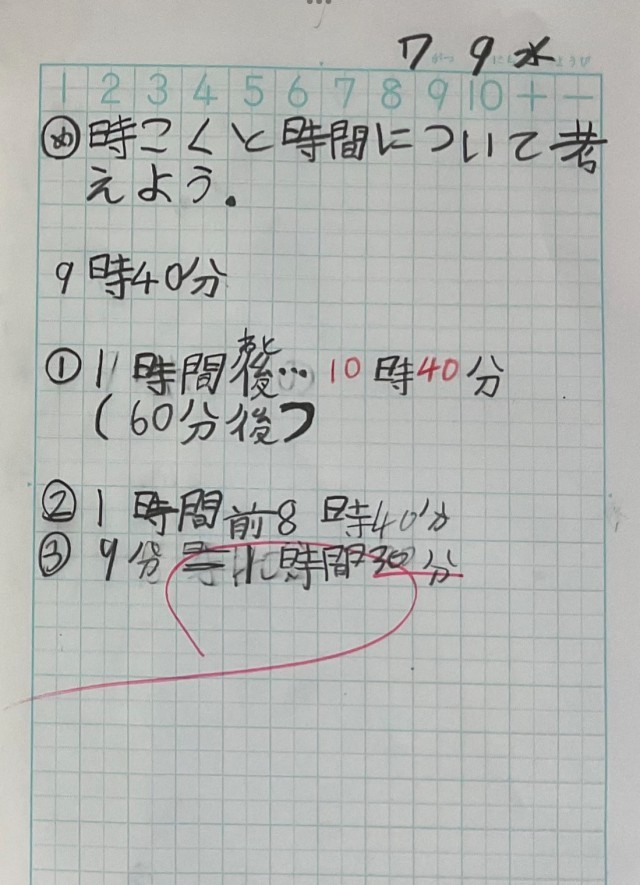 7 9 水
1 2 3 4 5 6 7 8 9 10 + −
め 時こくと時間について考
えよう.
9時40分
① 1時間後… 10時40分
あと
(60分後)
② 1時間前 8時40分
③ 9分 = 1時間30分